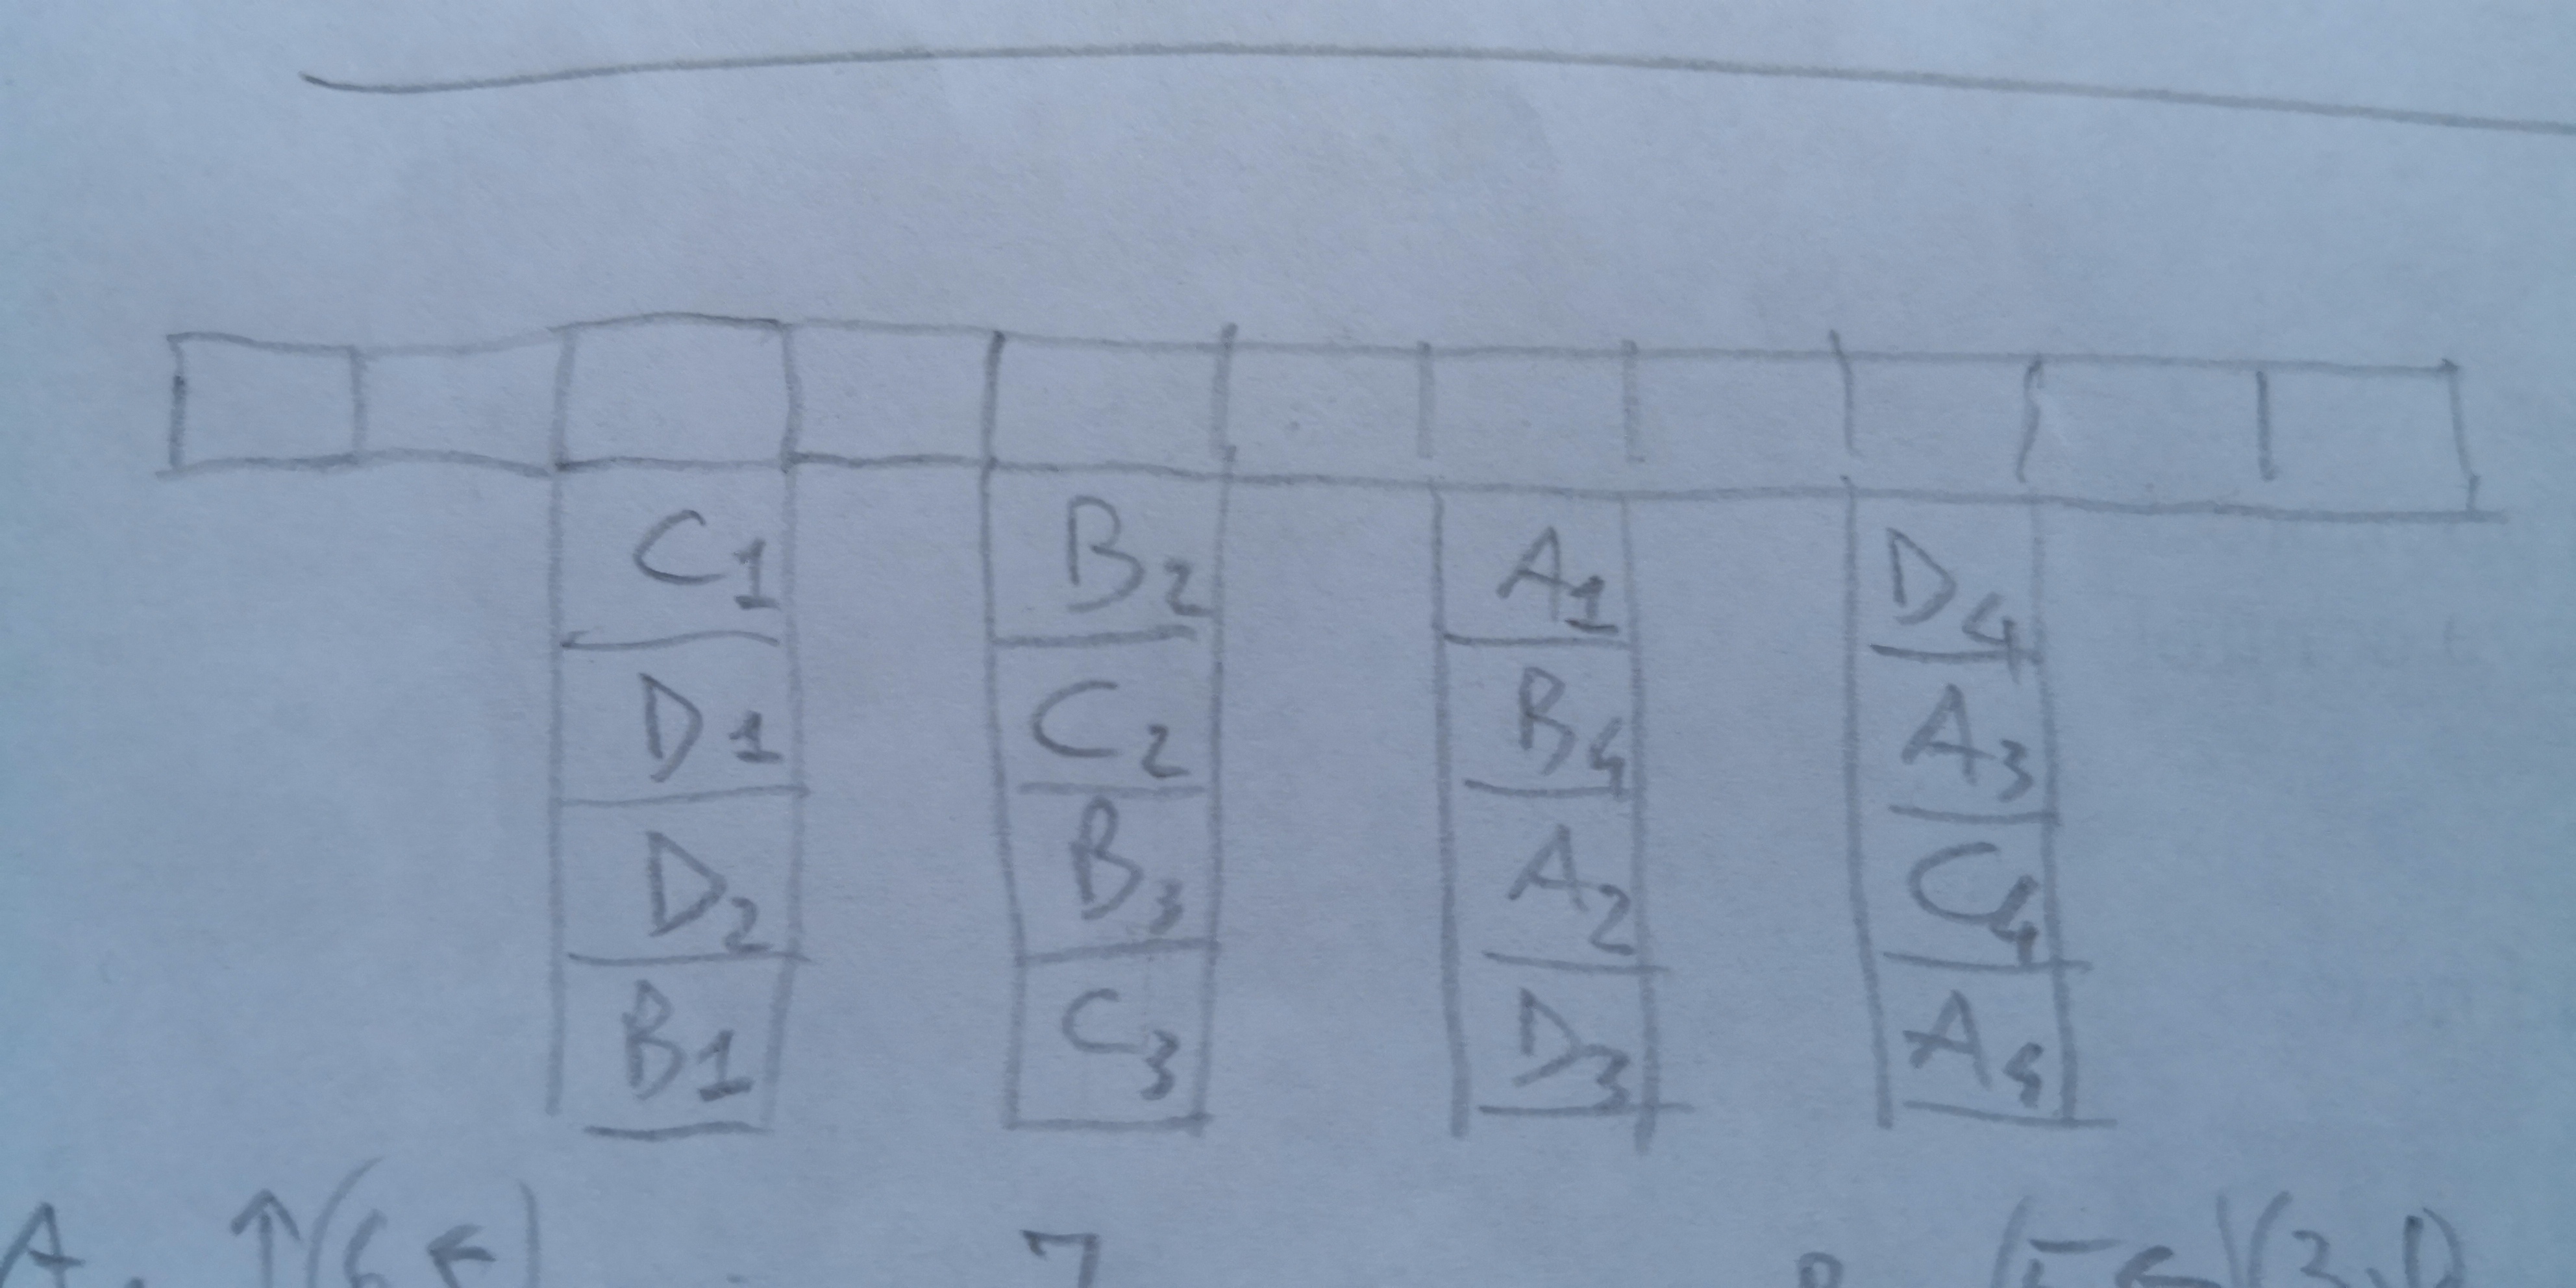 C1 B2 A1 D4
D1 C2 B4 A3
D2 B3 A2 C4
B1 C3 D3 A4
A. ↑(6 5) 7